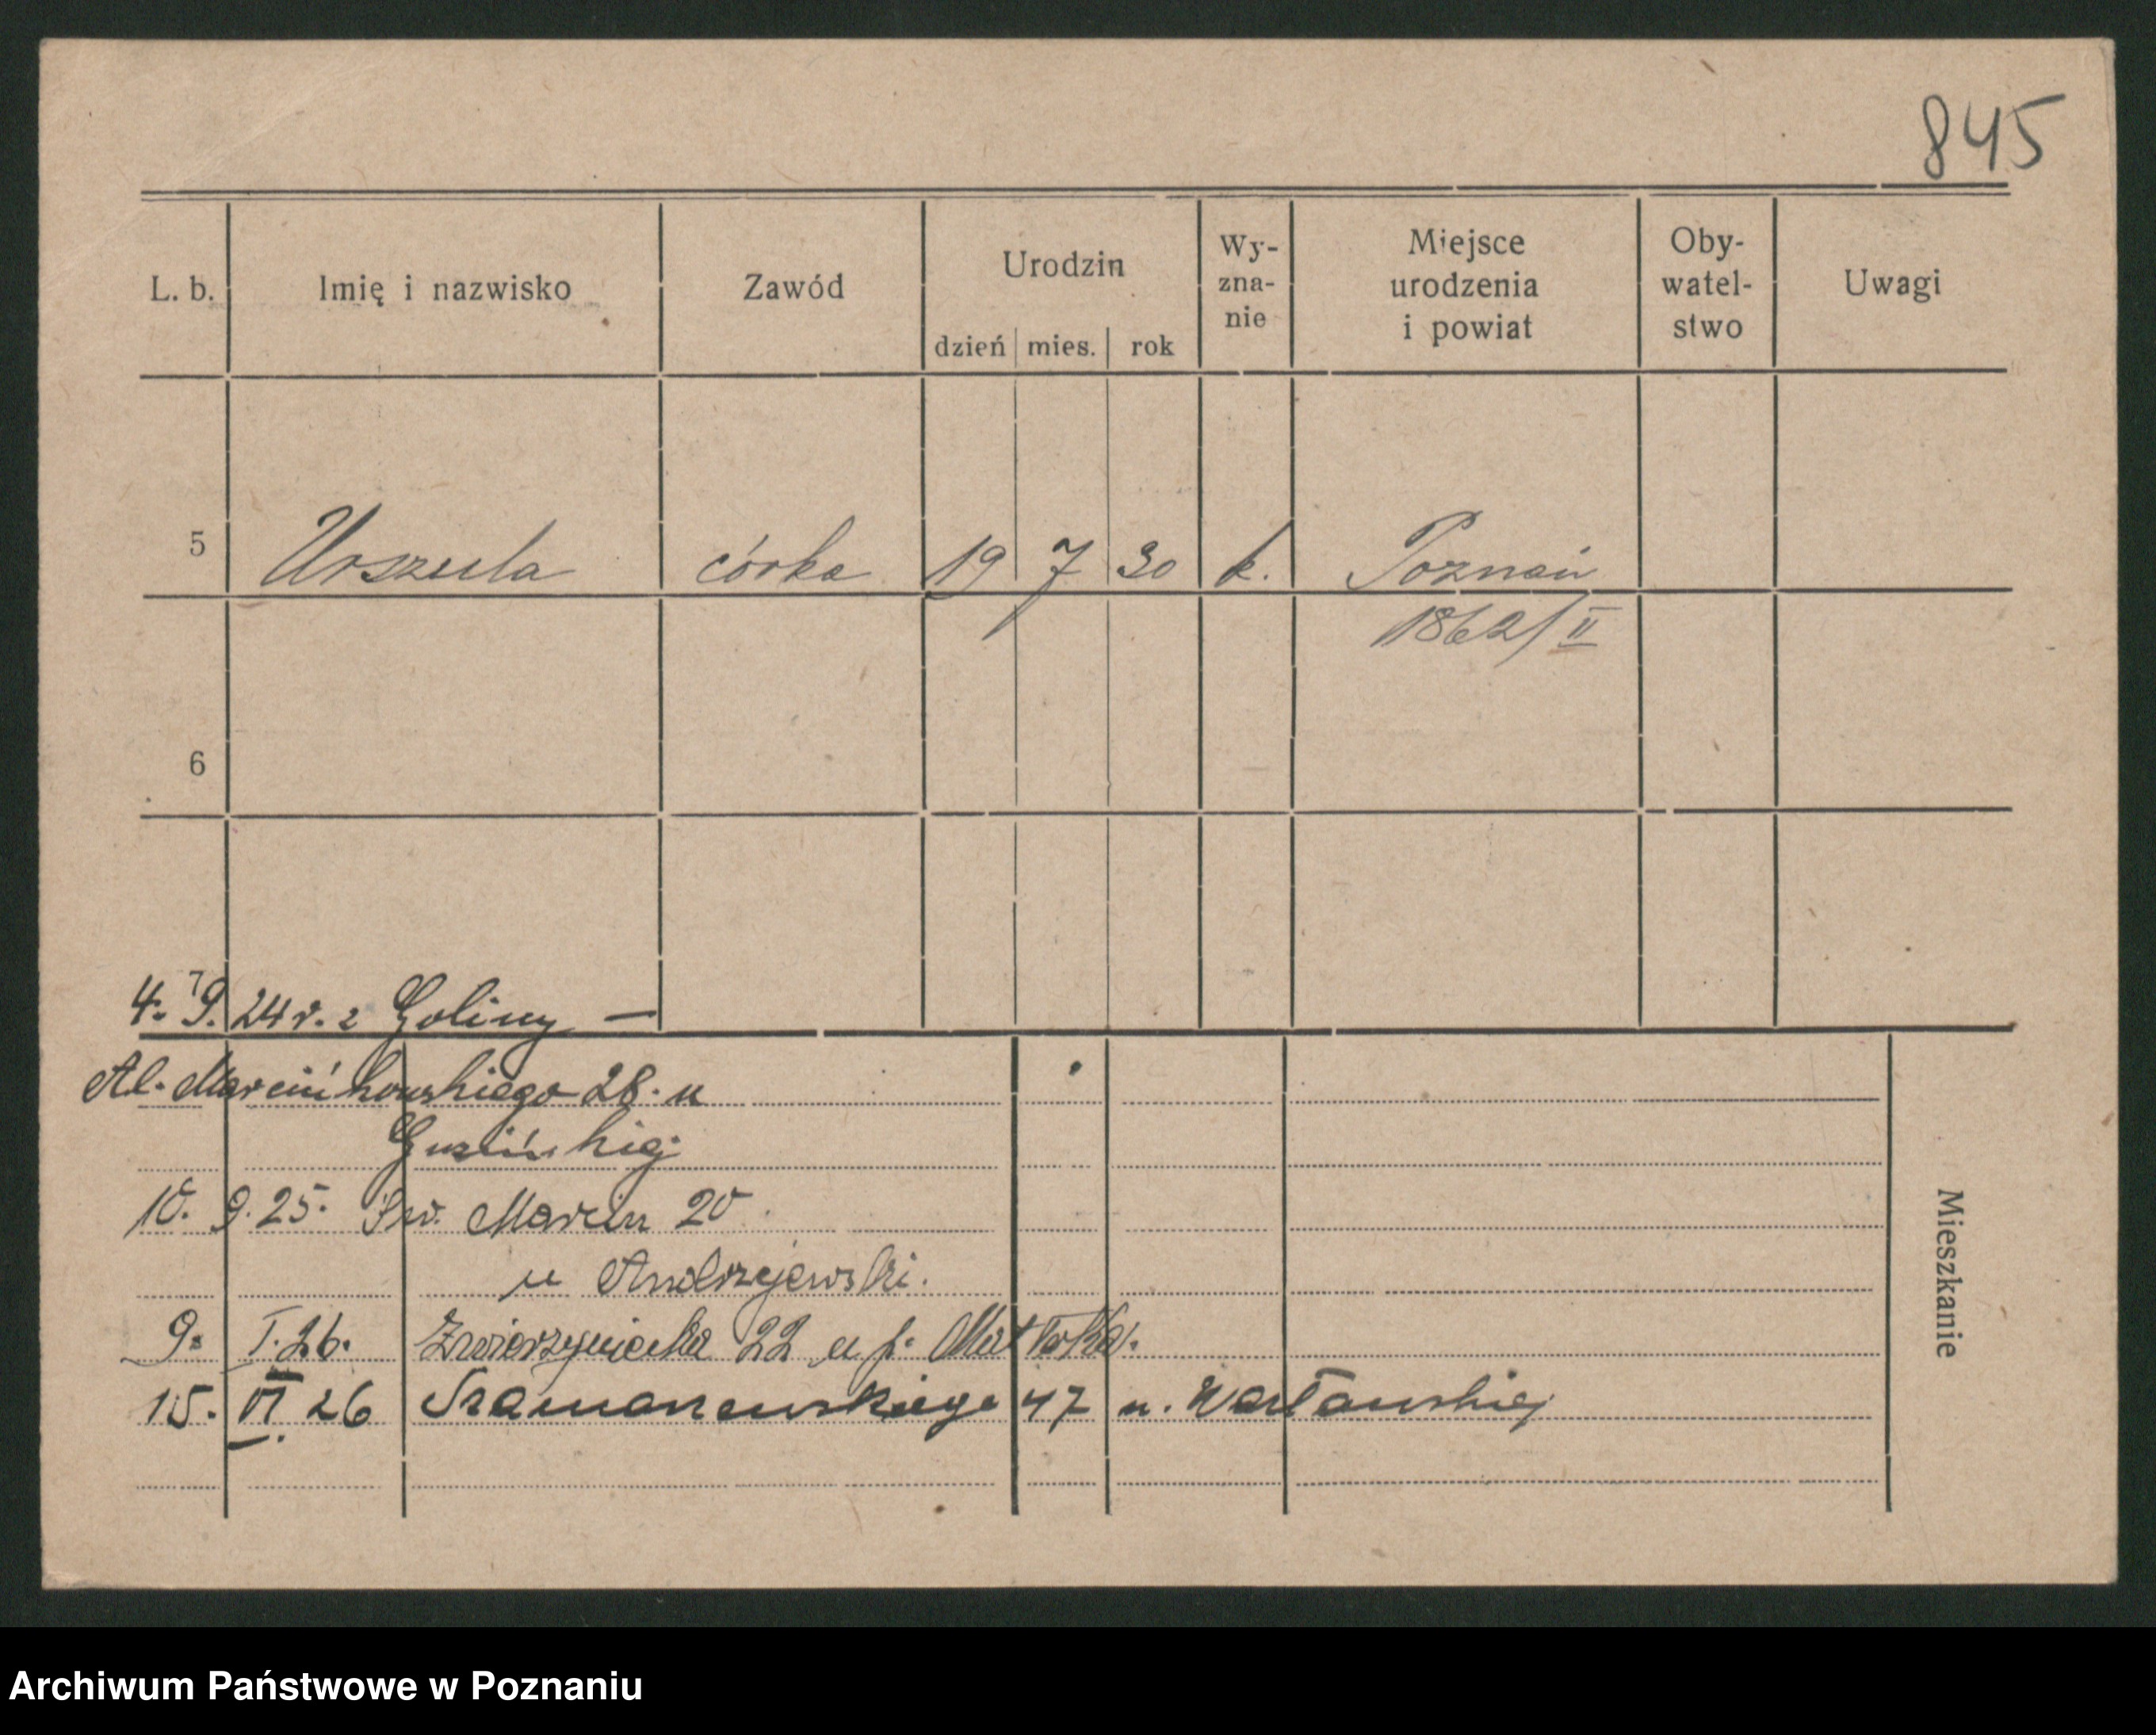 845
L. b. Imię i nazwisko Zawód Urodzin dzień mies. rok Wy-zna-nie Miejsce urodzenia i powiat Oby-watel-stwo Uwagi
5 Urszula córka 19 7 30 k. Poznań
1862/II
6
4. 9. 24 r. z Goliny —
Al. Marcinkowskiego 28. u
10. 9. 25. Św. Marcin 20
u Andrzejewski.
9. I. 26. Zwierzyniecka 22 u p.
15. VI 26 Szamarzewskiego 47 u.
Mieszkanie
Archiwum Państwowe w Poznaniu